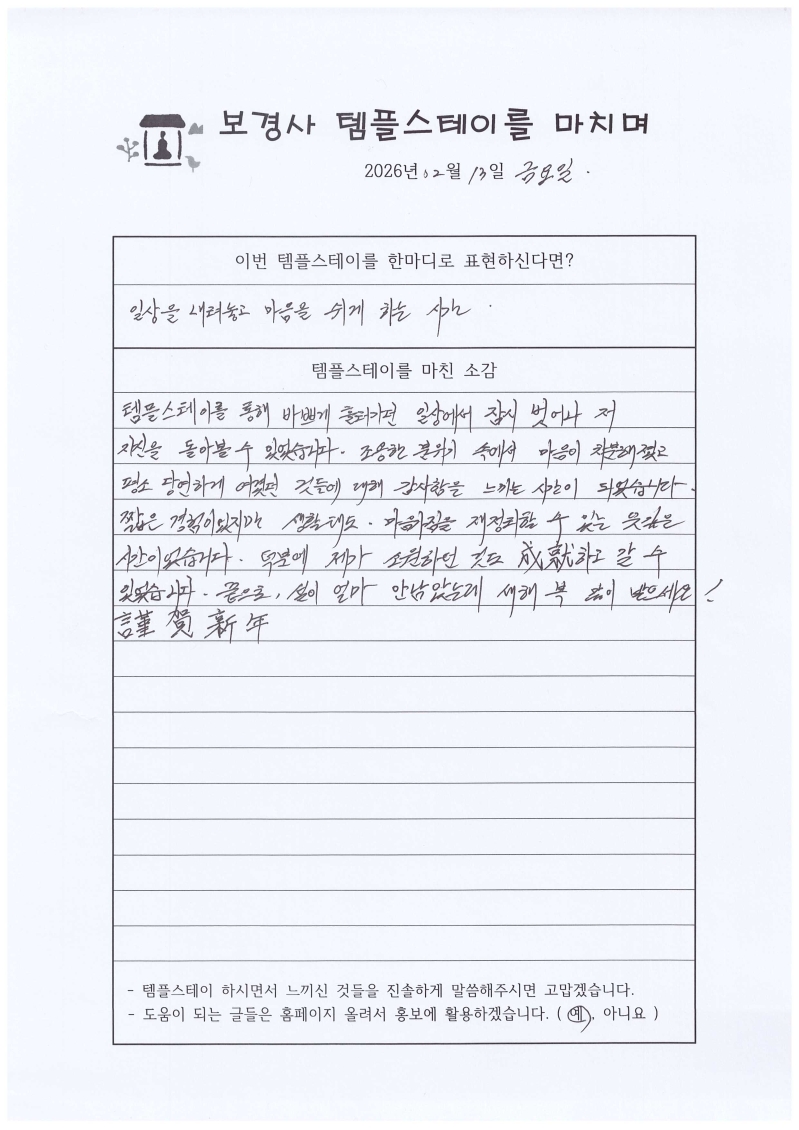 보경사 템플스테이를 마치며
2026년 02월 13일 금요일.
이번 템플스테이를 한마디로 표현하신다면?
일상을 내려놓고 마음을 쉬게 하는 시간.
템플스테이를 마친 소감
템플스테이를 통해 바쁘게 흘러가던 일상에서 잠시 벗어나 저
자신을 돌아볼 수 있었습니다. 조용한 분위기 속에서 마음이 차분해졌고
평소 당연하게 여겼던 것들에 대해 감사함을 느끼는 시간이 되었습니다.
짧은 경험이었지만 생활태도. 마음가짐을 재정리할 수 있는 뜻깊은
시간이었습니다. 덕분에 제가 소원하던 것도 成就하고 갈 수
있었습니다. 끝으로, 설이 얼마 안남았는데 새해 복 많이 받으세요!
謹賀新年
- 템플스테이 하시면서 느끼신 것들을 진솔하게 말씀해주시면 고맙겠습니다.
- 도움이 되는 글들은 홈페이지 올려서 홍보에 활용하겠습니다. ( 예, 아니요 )